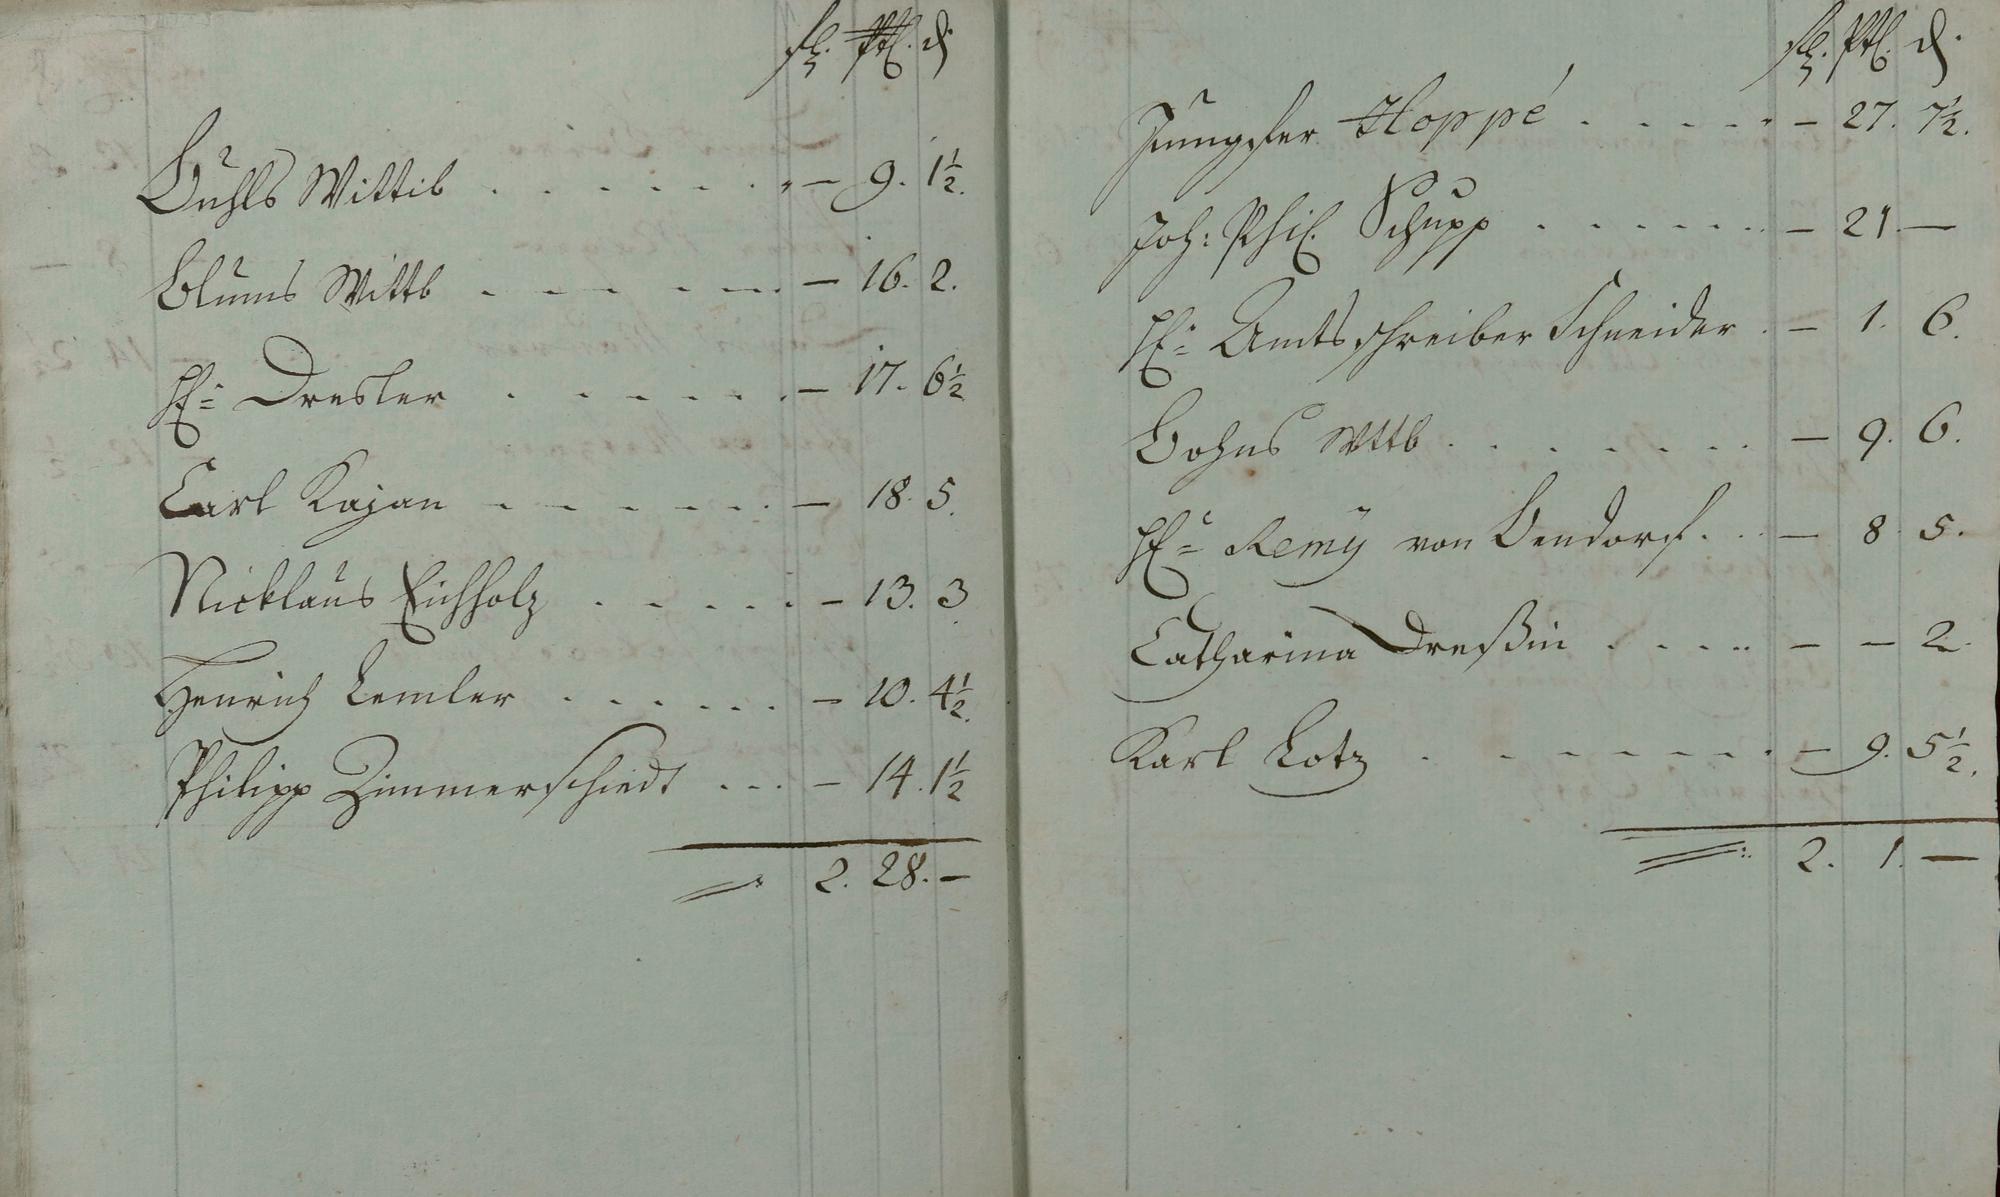 fl. Ptl. d.
Buhls Wittib . . . . . . . — 9. 1½.
Blums Wittb . . . . . . — 16. 2.
H. Dresler . . . . . . — 17. 6½
Carl Kajan . . . . . . — 18. 5.
Nicklaus Eichholz . . . . . — 13. 3.
Henrich Lemler . . . . . . — 10. 4½.
Philipp Zimmerschiedt . . . — 14. 1½
2. 28. —
fl. Ptl. d.
Jungfer Hoppé . . . . . — 27. 7½.
Joh: Phil. Schupp . . . . . . — 21 —
H. Amtsschreiber Schneider . — 1. 6.
Bohns Wttb . . . . . . . — 9. 6.
H. Remÿ von Bendorf . . . — 8. 5.
Catharina Dreßin . . . . . — — 2.
Karl Lotz . . . . . . . — 9. 5½.
2. 1. —